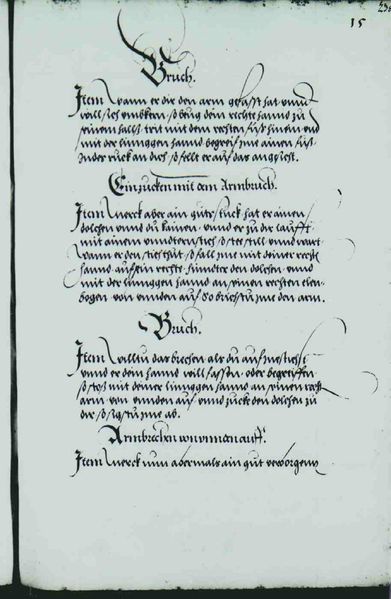 23
15
Bruch.
Item Wann er dir den arm gefasst hat vnnd
will sich vmbkern so beug dein rechte hannd zu
seinen halls trit mit dem rechten fuß hinein vnd
mit der linnggen hannd begreif ime ainen fuß
Inder ruck an dich so fellt er auf das angesicht.
Ein zucken mit dem Armbruch.
Item Merck aber ain guts stuck hat er ainen
dolchen vnnd du kainen. vnnd er zu dir laufft
mit ainem vnndtern stich so stee still vnnd wart
wann er den stich thut so fall ime mit deiner recht
hannd auf sein rechte hinnder den dolchen vnnd
mit der linnggen hannd an seinen rechten elen-
bogen von vnnden auf So brichstu ime den arm.
Bruch.
Item Willtu das brechen als du auf ine stichst
vnnd er dein hannd will fassen oder begreiffen
so stoß mit deiner linnggen hannd an seinen recht
arm von vnnden auf vnnd zuck den dolchen zu
dir so sigstu ime ob.
Armbrechen von vnnden auff.
Item Merck nun abermals ain gut verborgenn